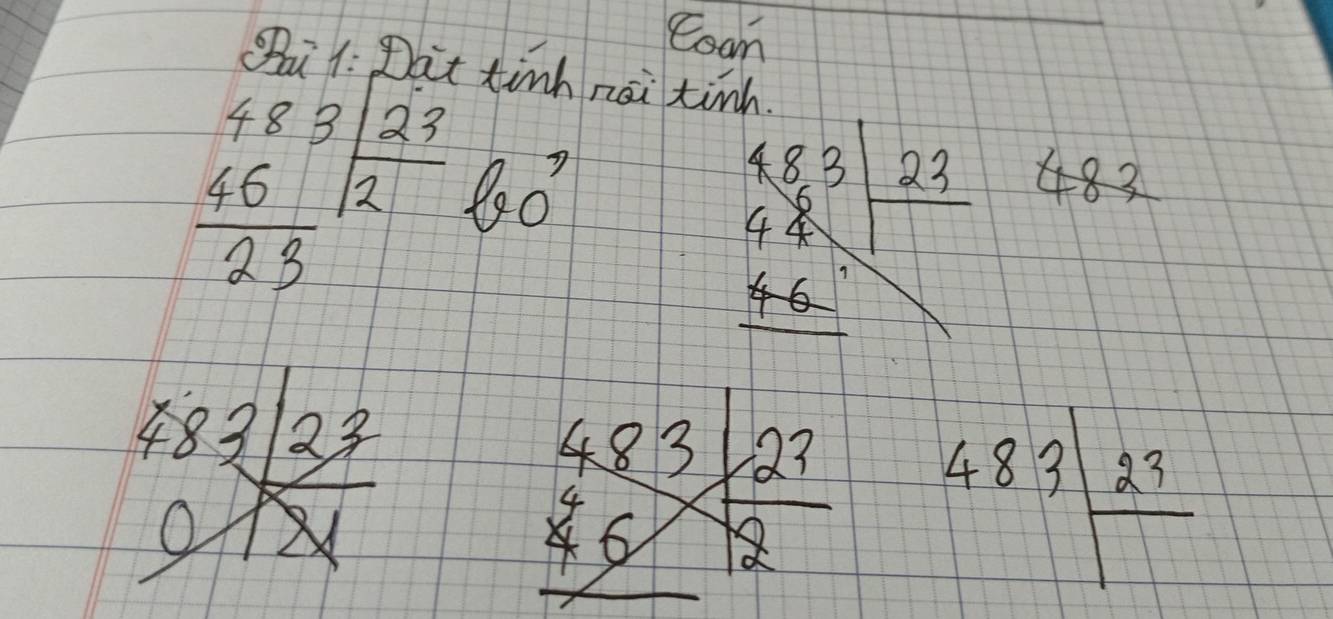 Toán
Bài 1: Đặt tính rồi tính.
483 23
46 2 bỏ
23
483 23 483
446
46
483 23
0 21
483 23
4
46 2
483 23